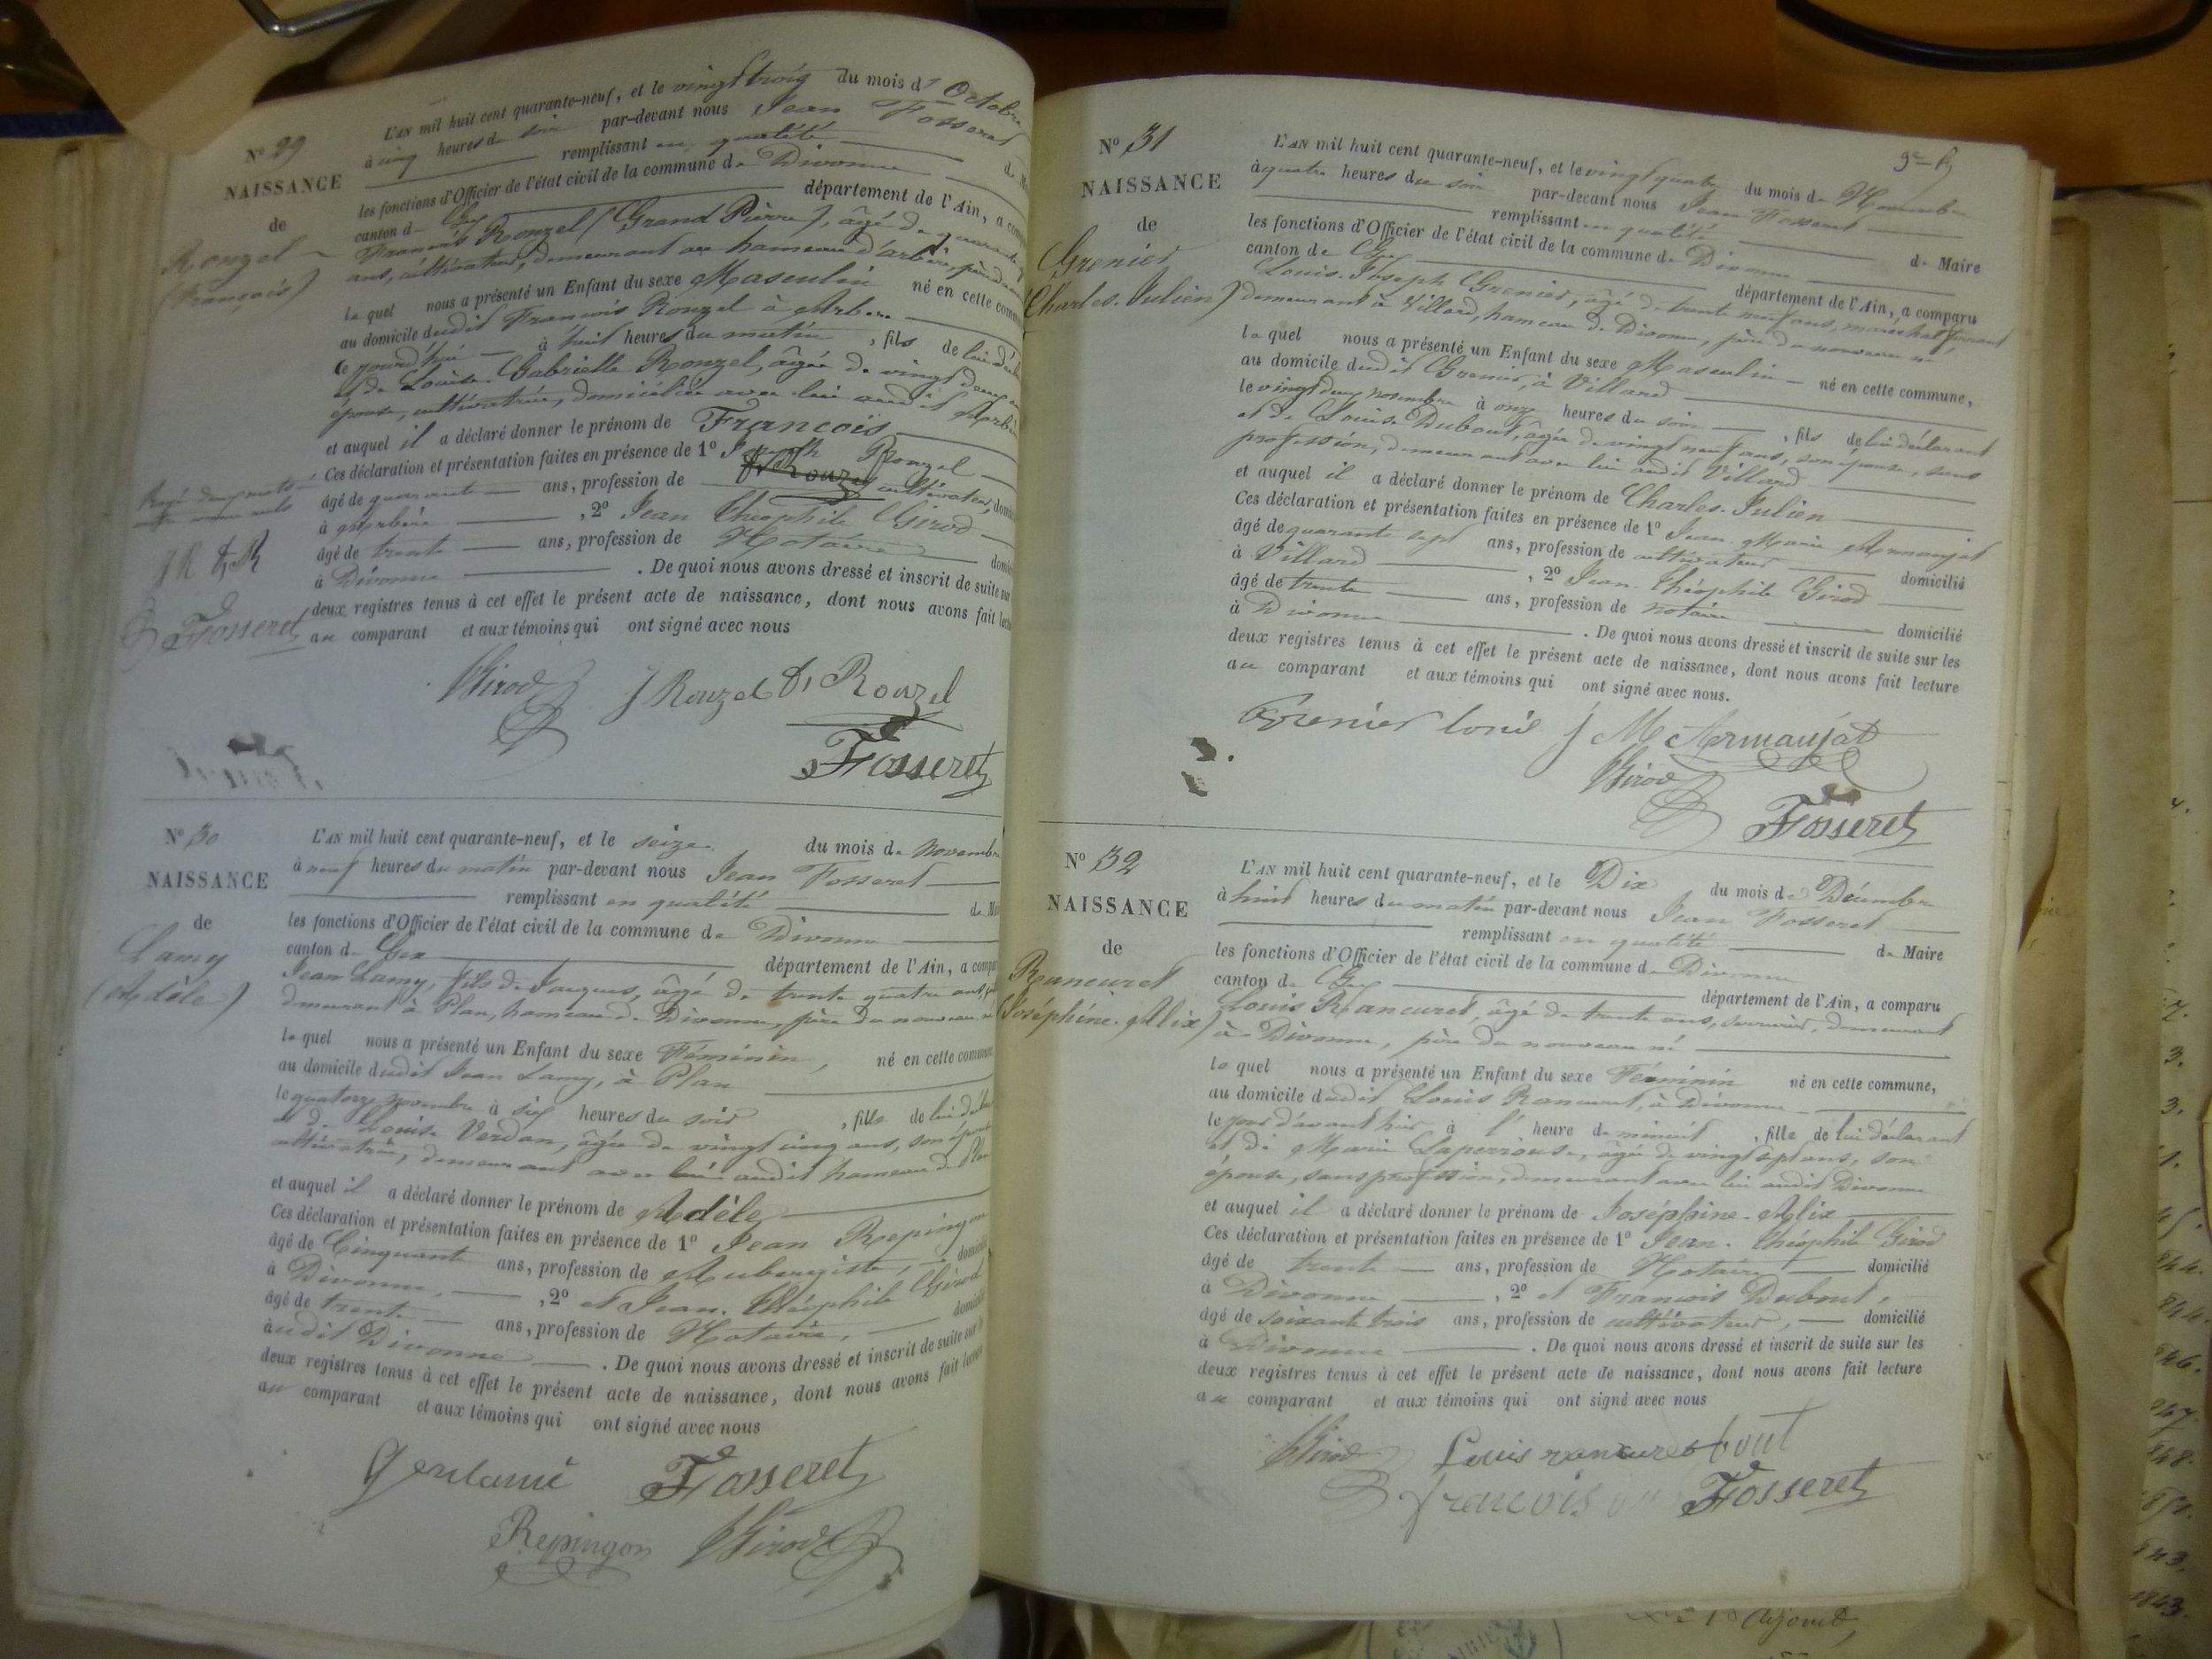 Nº 29
NAISSANCE
de
Rouzel
(François)
L'AN mil huit cent quarante-neuf, et le vingt trois du mois d' Octobre
à cinq heures du soir par-devant nous Jean Fosseret
remplissant en qualité de
les fonctions d'Officier de l'état civil de la commune de Divonne
canton de Gex département de l'Ain, a
François Rouzel (Grand Pierre), âgé de quarante
ans, cultivateur, demeurant au hameau d'arbère,
le quel nous a présenté un Enfant du sexe Masculin né en cette
au domicile dudit François Rouzel à Arbère
ce jourd'hui à huit heures du matin, fils de lui
et de Louise Gabrielle Rouzel, âgée de vingt
épouse, cultivatrice, domiciliée avec lui audit Arbère
et auquel il a déclaré donner le prénom de François
Ces déclaration et présentation faites en présence de 1º Joseph Rouzel
âgé de quarante ans, profession de cultivateur,
à Arbère, 2º Jean Théophile Girod
âgé de trente ans, profession de Notaire
à Divonne. De quoi nous avons dressé et inscrit de suite sur
deux registres tenus à cet effet le présent acte de naissance, dont nous avons fait
au comparant et aux témoins qui ont signé avec nous
Rayé deux mots
Fosseret
Girod J Rouzel F. Rouzel
Fosseret
Nº 30
NAISSANCE
de
Lamy
(Adèle)
L'AN mil huit cent quarante-neuf, et le seize du mois de Novembre
à neuf heures du matin par-devant nous Jean Fosseret
remplissant en qualité de
les fonctions d'Officier de l'état civil de la commune de Divonne
canton de Gex département de l'Ain, a
Jean Lamy, fils de Jacques, âgé de trente quatre ans,
demeurant à Plan, hameau de Divonne, père du nouveau
le quel nous a présenté un Enfant du sexe Féminin, né en cette commune
au domicile dudit Jean Lamy, à Plan
le quatorze novembre à six heures du soir, fille de lui
et de Louise Verdan, âgée de vingt cinq ans, son épouse
cultivatrice, demeurant avec lui audit hameau de Plan
et auquel il a déclaré donner le prénom de Adèle
Ces déclaration et présentation faites en présence de 1º Jean Repingon
âgé de Cinquante ans, profession de Aubergiste,
à Divonne, 2º et Jean. Théophile Girod
âgé de trente ans, profession de Notaire,
audit Divonne. De quoi nous avons dressé et inscrit de suite sur
deux registres tenus à cet effet le présent acte de naissance, dont nous avons fait lecture
au comparant et aux témoins qui ont signé avec nous
Fosseret
Repingon Girod
Nº 31
NAISSANCE
de
Grenier
(Charles-Julien)
L'AN mil huit cent quarante-neuf, et le vingt quatre du mois de Novembre
à quatre heures du soir par-devant nous Jean Fosseret
remplissant en qualité de Maire
les fonctions d'Officier de l'état civil de la commune de Divonne
canton de Gex département de l'Ain, a comparu
Louis-Joseph Grenier, âgé de trente neuf ans, maréchal ferrant
demeurant à Villard, hameau de Divonne, père du nouveau né
le quel nous a présenté un Enfant du sexe Masculin né en cette commune,
au domicile dudit Grenier, à Villard
le vingt deux novembre à onze heures du soir, fils de lui déclarant
et de Louise Dubout, âgée de vingt neuf ans, son épouse, sans
profession, demeurant avec lui audit Villard
et auquel il a déclaré donner le prénom de Charles-Julien
Ces déclaration et présentation faites en présence de 1º Jean Marie Armanjat
âgé de quarante sept ans, profession de cultivateur domicilié
à Villard, 2º Jean. Théophile Girod
âgé de trente ans, profession de notaire domicilié
à Divonne. De quoi nous avons dressé et inscrit de suite sur les
deux registres tenus à cet effet le présent acte de naissance, dont nous avons fait lecture
au comparant et aux témoins qui ont signé avec nous.
Grenier Louis J M Armanjat
Girod
Fosseret
Nº 32
NAISSANCE
de
Rancuret
(Joséphine-Alix)
L'AN mil huit cent quarante-neuf, et le Dix du mois de Décembre
à huit heures du matin par-devant nous Jean Fosseret
remplissant en qualité de Maire
les fonctions d'Officier de l'état civil de la commune de Divonne
canton de Gex département de l'Ain, a comparu
Louis Rancuret, âgé de trente ans, serrurier, demeurant
à Divonne, père du nouveau né
le quel nous a présenté un Enfant du sexe Féminin né en cette commune,
au domicile dudit Louis Rancuret, à Divonne
le jour d'avant hier à l' heure de minuit, fille de lui déclarant
et de Marie Laperrouse, âgée de vingt sept ans, son
épouse, sans profession, demeurant avec lui audit Divonne
et auquel il a déclaré donner le prénom de Joséphine-Alix
Ces déclaration et présentation faites en présence de 1º Jean. Théophile Girod
âgé de trente ans, profession de Notaire domicilié
à Divonne, 2º et François Dubout,
âgé de soixante trois ans, profession de cultivateur, domicilié
à Divonne. De quoi nous avons dressé et inscrit de suite sur les
deux registres tenus à cet effet le présent acte de naissance, dont nous avons fait lecture
au comparant et aux témoins qui ont signé avec nous
Girod Louis rancuret
francois Fosseret